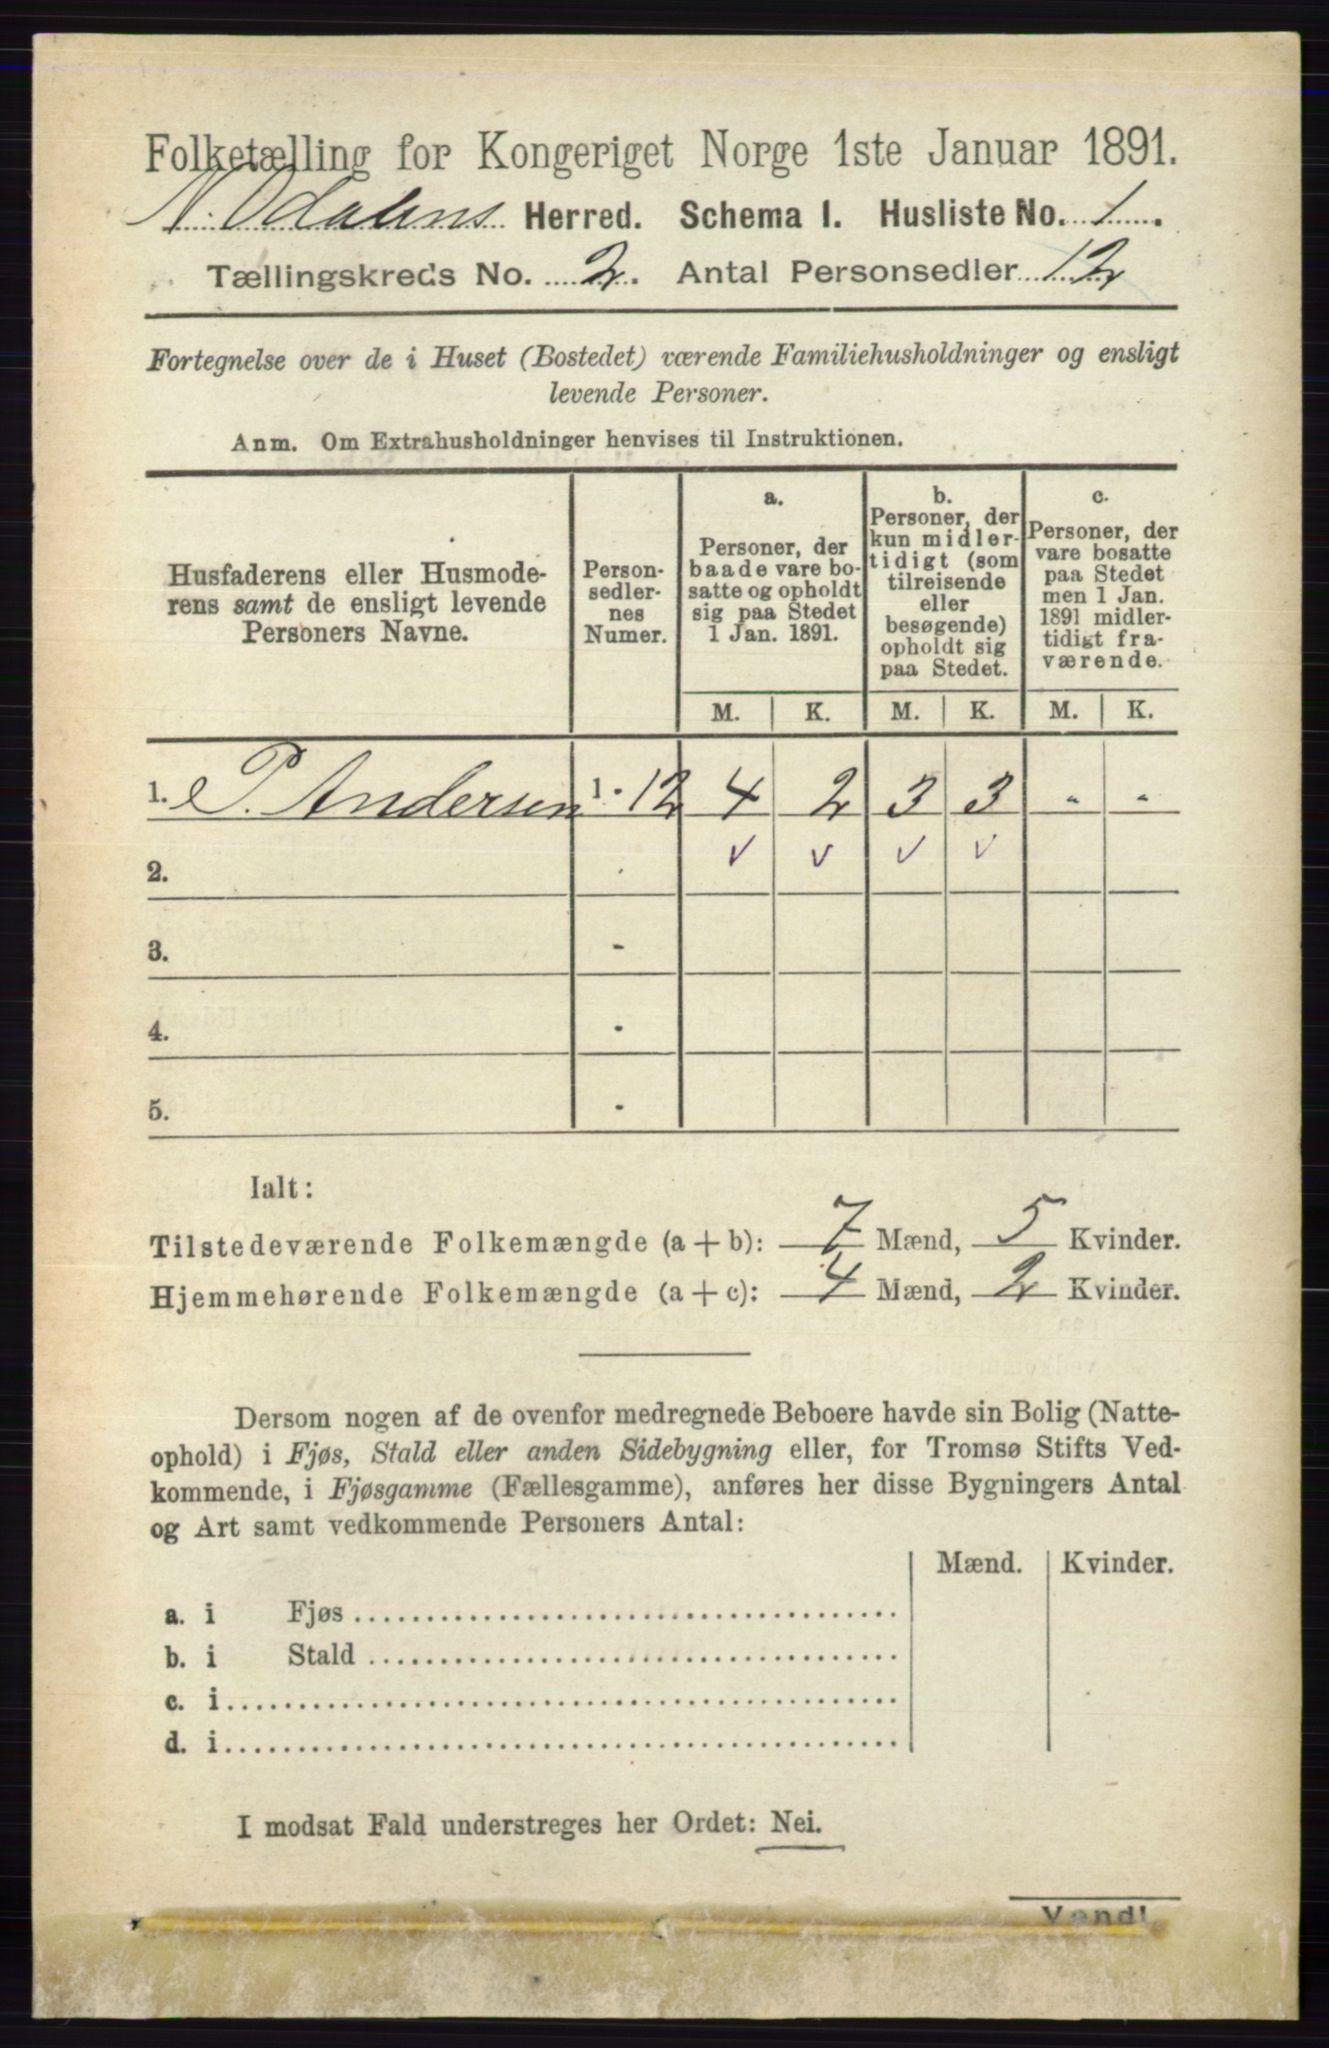 Folketælling for Kongeriget Norge 1ste Januar 1891.
N. Odalens Herred. Schema I. Husliste No. 1.
Tællingskreds No. 2. Antal Personsedler 12
Fortegnelse over de i Huset (Bostedet) værende Familiehusholdninger og ensligt
levende Personer.
Anm. Om Extrahusholdninger henvises til Instruktionen.
Husfaderens eller Husmode-
rens samt de ensligt levende
Personers Navne.
Person-
sedler-
nes
Numer.
a.
Personer, der
baade vare bo-
satte og opholdt
sig paa Stedet
1 Jan. 1891.
b.
Personer, der
kun midler-
tidigt (som
tilreisende
eller
besøgende)
opholdt sig
paa Stedet.
c.
Personer, der
vare bosatte
paa Stedet
men 1 Jan.
1891 midler-
tidigt fra-
værende.
M. K. M. K. M. K.
1. P. Andersen 1 - 12 4 2 3 3 - -
2. ✓ ✓ ✓ ✓
3. -
4. -
5. -
Ialt:
Tilstedeværende Folkemængde (a + b): 7 Mænd, 5 Kvinder.
Hjemmehørende Folkemængde (a + c): 4 Mænd, 2 Kvinder.
Dersom nogen af de ovenfor medregnede Beboere havde sin Bolig (Natte-
ophold) i Fjøs, Stald eller anden Sidebygning eller, for Tromsø Stifts Ved-
kommende, i Fjøsgamme (Fællesgamme), anføres her disse Bygningers Antal
og Art samt vedkommende Personers Antal:
Mænd. Kvinder.
a. i Fjøs
b. i Stald
c. i
d. i
I modsat Fald understreges her Ordet: Nei.
Vend!